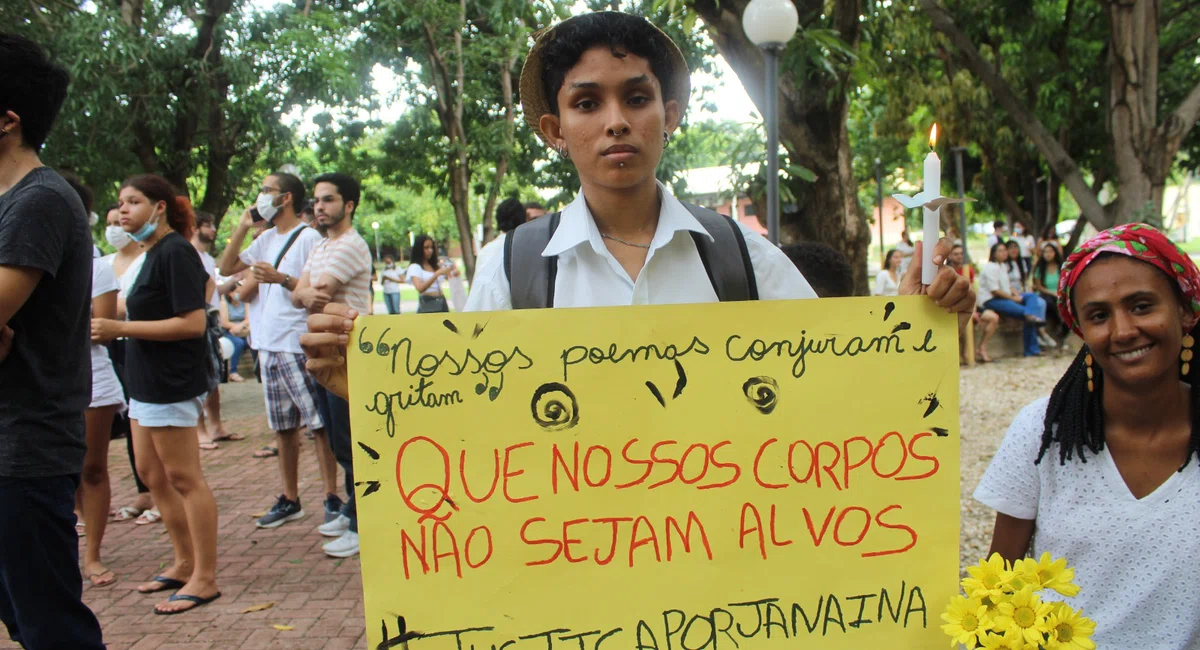 "Nossos poemas conjuram e
gritam"
QUE NOSSOS CORPOS
NÃO SEJAM ALVOS
#JUSTIÇAPORJANAINA